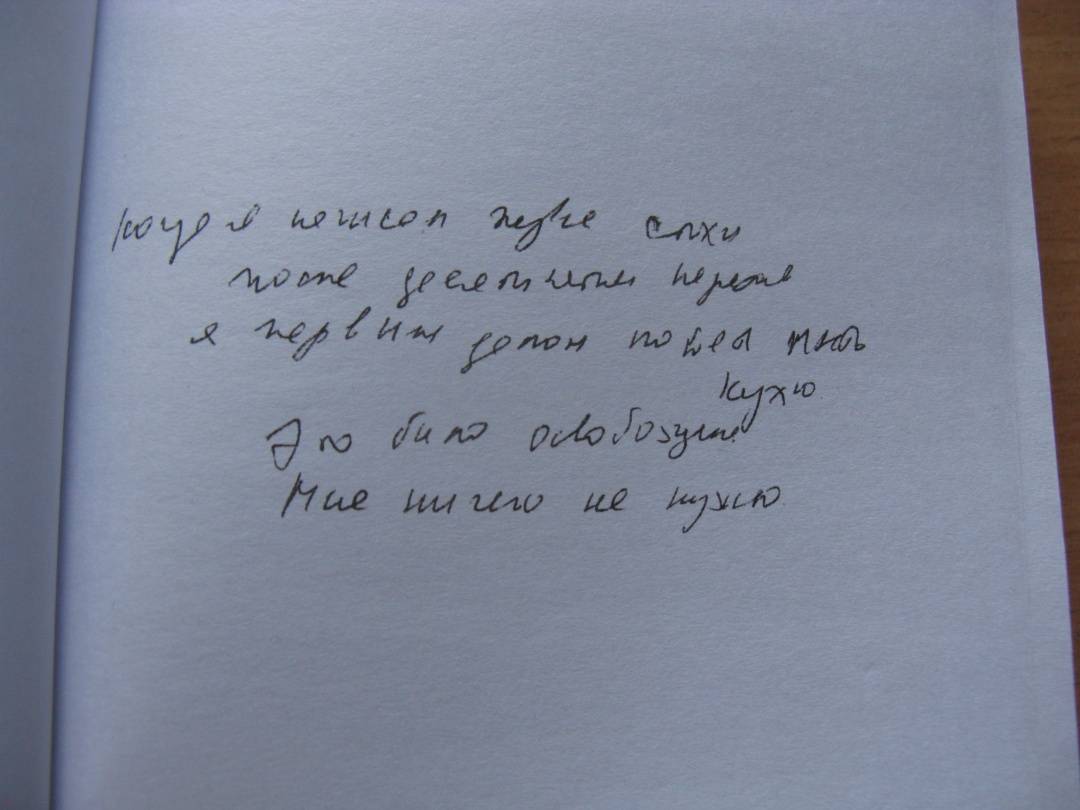 когда я написал первые стихи
после десятилетнего перерыва
я первым делом пошел мыть
кухню
Это было освобождение
Мне ничего не нужно